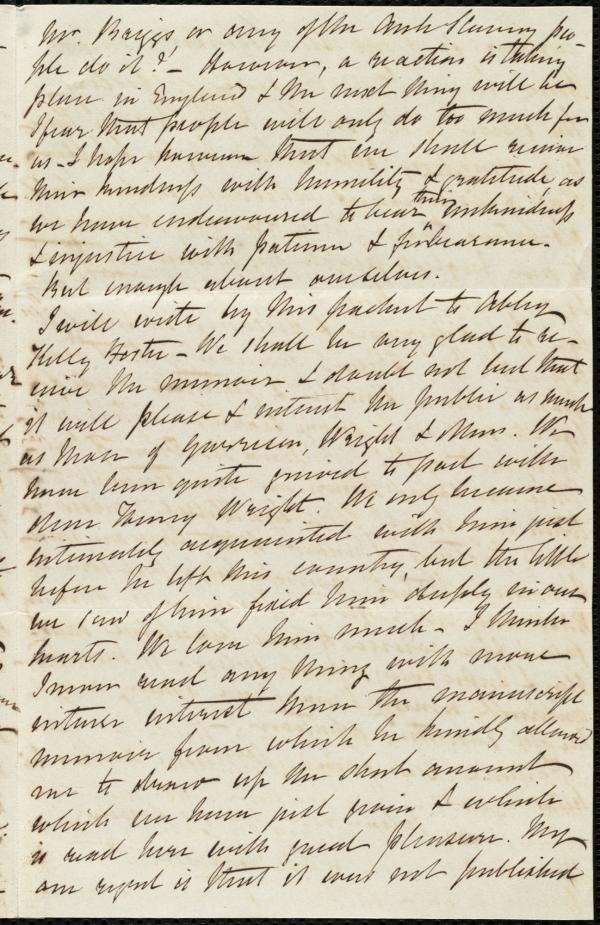 Mr. Briggs or any of the Anti Slavery peo-
ple do it?! – However, a reaction is taking
place in England & the next thing will be
I fear that people will only do too much for
us – I hope however that we shall receive
their kindness with humility & gratitude, as
we have endeavoured to bear their unkindness
& injustice with patience & forbearance.
But enough about ourselves.
I will write by this packet to Abby
Kelly Foster – We shall be very glad to re-
ceive the memoir & doubt not but that
it will please & interest the public as much
as those of Garrison, Wright & others. We
have been quite grieved to part with
dear Henry Wright. We only became
intimately acquainted with him just
before he left this country, but the little
we saw of him fixed him deeply in our
hearts. We love him much – I think
I never read any thing with more
intense interest than the manuscript
memoir from which he kindly allowed
me to draw up the short account
which we have just given & which
is read here with great pleasure. My
one regret is that it was not published